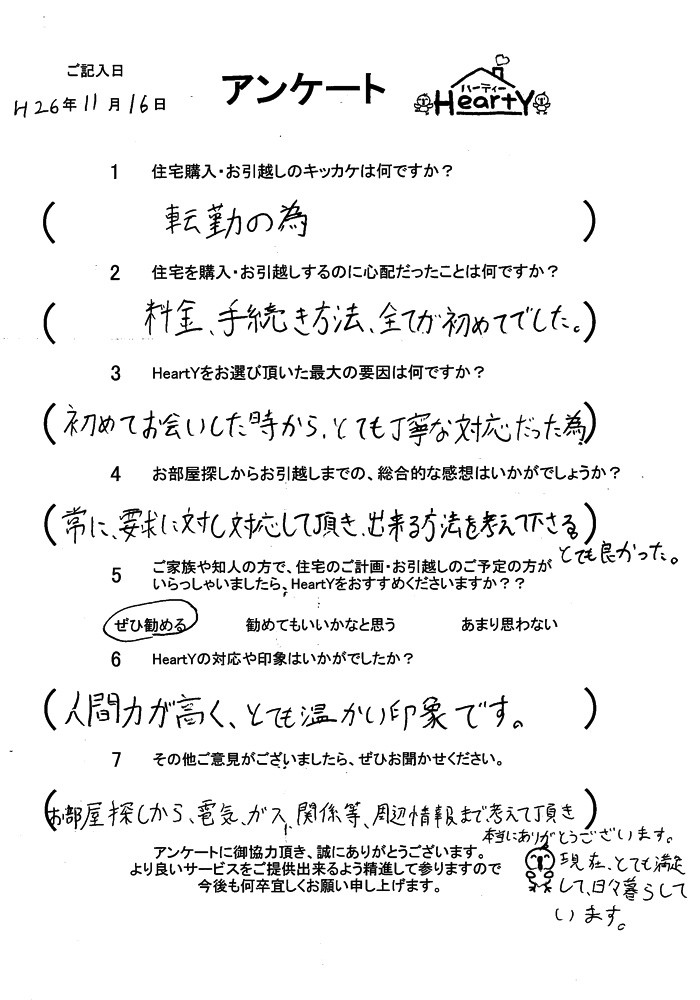 ご記入日
アンケート
ハーティー
HeartY
H26年11月16日
1 住宅購入・お引越しのキッカケは何ですか？
(転勤の為)
2 住宅を購入・お引越しするのに心配だったことは何ですか？
(料金、手続き方法、全てが初めてでした。)
3 HeartYをお選び頂いた最大の要因は何ですか？
(初めてお会いした時から、とても丁寧な対応だった為)
4 お部屋探しからお引越しまでの、総合的な感想はいかがでしょうか？
(常に、要求に対し対応して頂き、出来る方法を考えて下さる)
とても良かった。
5 ご家族や知人の方で、住宅のご計画・お引越しのご予定の方が
いらっしゃいましたら、HeartYをおすすめくださいますか？？
ぜひ勧める 勧めてもいいかなと思う あまり思わない
6 HeartYの対応や印象はいかがでしたか？
(人間力が高く、とても温かい印象です。)
7 その他ご意見がございましたら、ぜひお聞かせください。
(お部屋探しから、電気、ガス、関係等、周辺情報まで考えて頂き)
本当にありがとうございます。
現在、とても満足
して、日々暮らして
います。
アンケートに御協力頂き、誠にありがとうございます。
より良いサービスをご提供出来るよう精進して参りますので
今後も何卒宜しくお願い申し上げます。